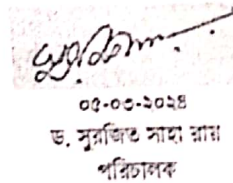 ০৫-০৩-২০২৪
ড. সুরজিত সাহা রায়
পরিচালক